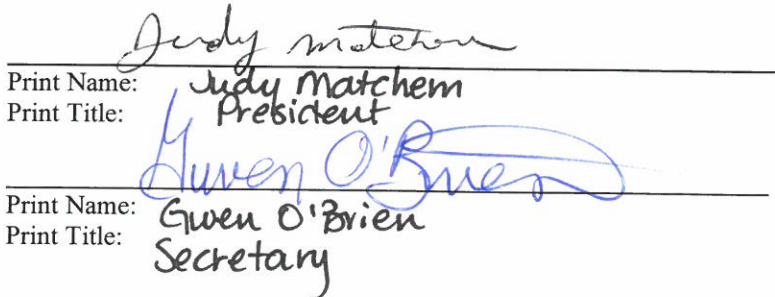 Judy Matchem
Print Name: Judy Matchem
Print Title: President
Gwen O'Brien
Print Name: Gwen O'Brien
Print Title: Secretary